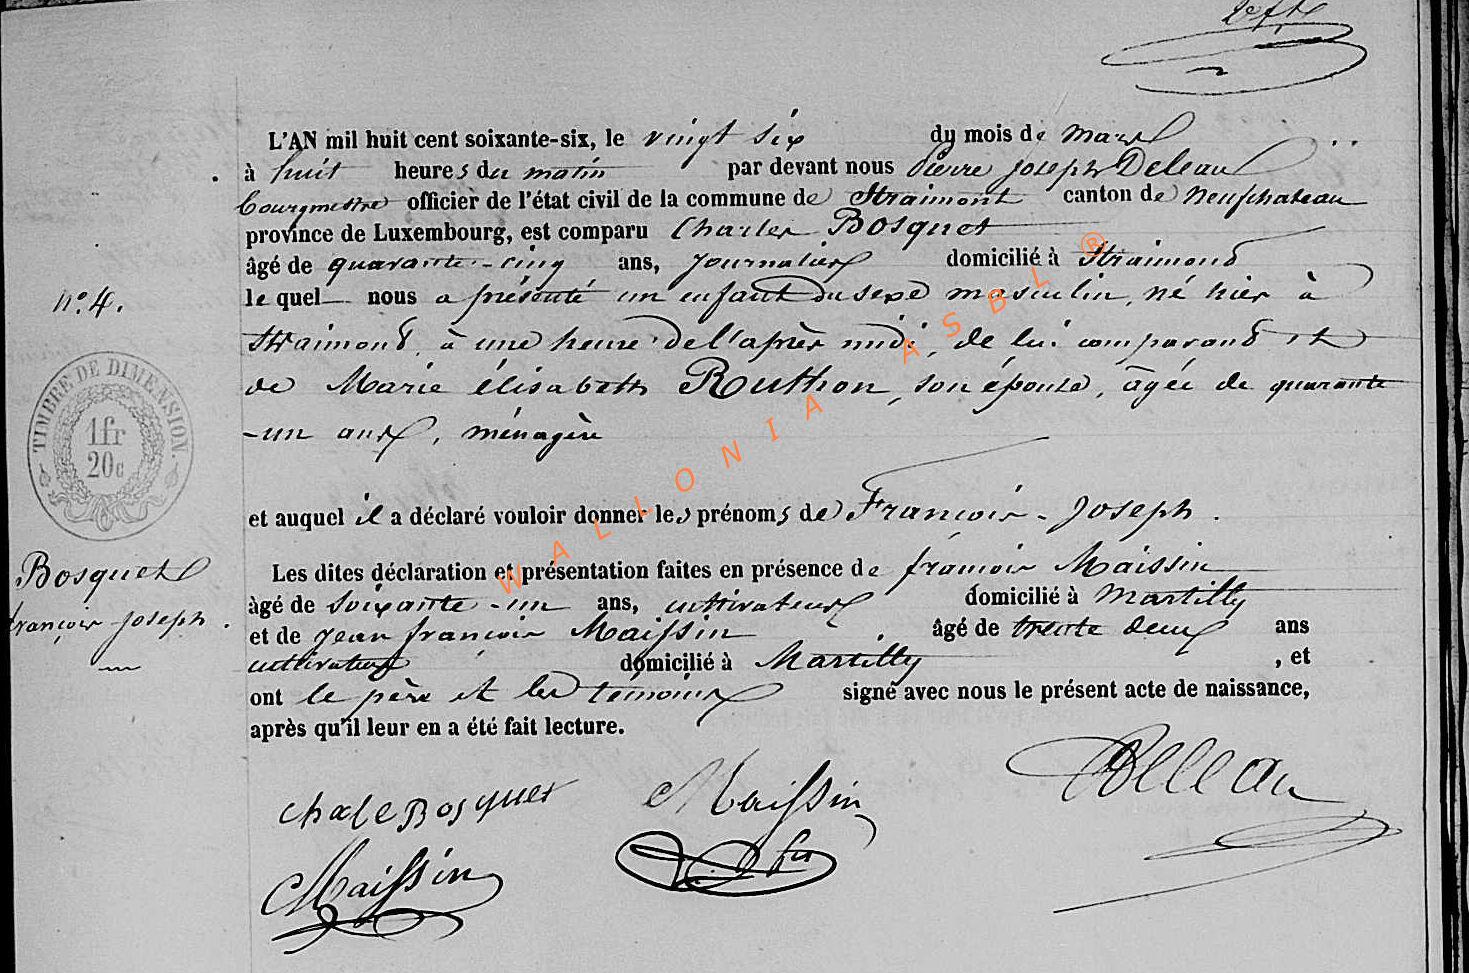 L'AN mil huit cent soixante-six, le vingt six du mois de mars
à huit heures du matin par devant nous Pierre Joseph Deleau
bourgmestre officier de l'état civil de la commune de Straimont canton de Neufchateau
province de Luxembourg, est comparu Charles Bosquet
âgé de quarante-cinq ans, journalier domicilié à Straimont
le quel nous a présenté un enfant du sexe masculin, né hier à
Straimont, à une heure de l'après midi, de lui comparant et
de Marie élisabeth Ruthon, son épouse, âgée de quarante
-un ans, ménagère
et auquel il a déclaré vouloir donner les prénoms de François-Joseph.
Les dites déclaration et présentation faites en présence de françois Maissin
âgé de soixante-un ans, cultivateur domicilié à Martilly
et de jean françois Maissin âgé de trente deux ans
cultivateur domicilié à Martilly , et
ont le père et les témoins signé avec nous le présent acte de naissance,
après qu'il leur en a été fait lecture.
n°. 4.
TIMBRE DE DIMENSION.
1fr
20c
Bosquet
françois joseph.
Bosquet Maissin Deleau
Maissin
WALLONIA ASBL ®